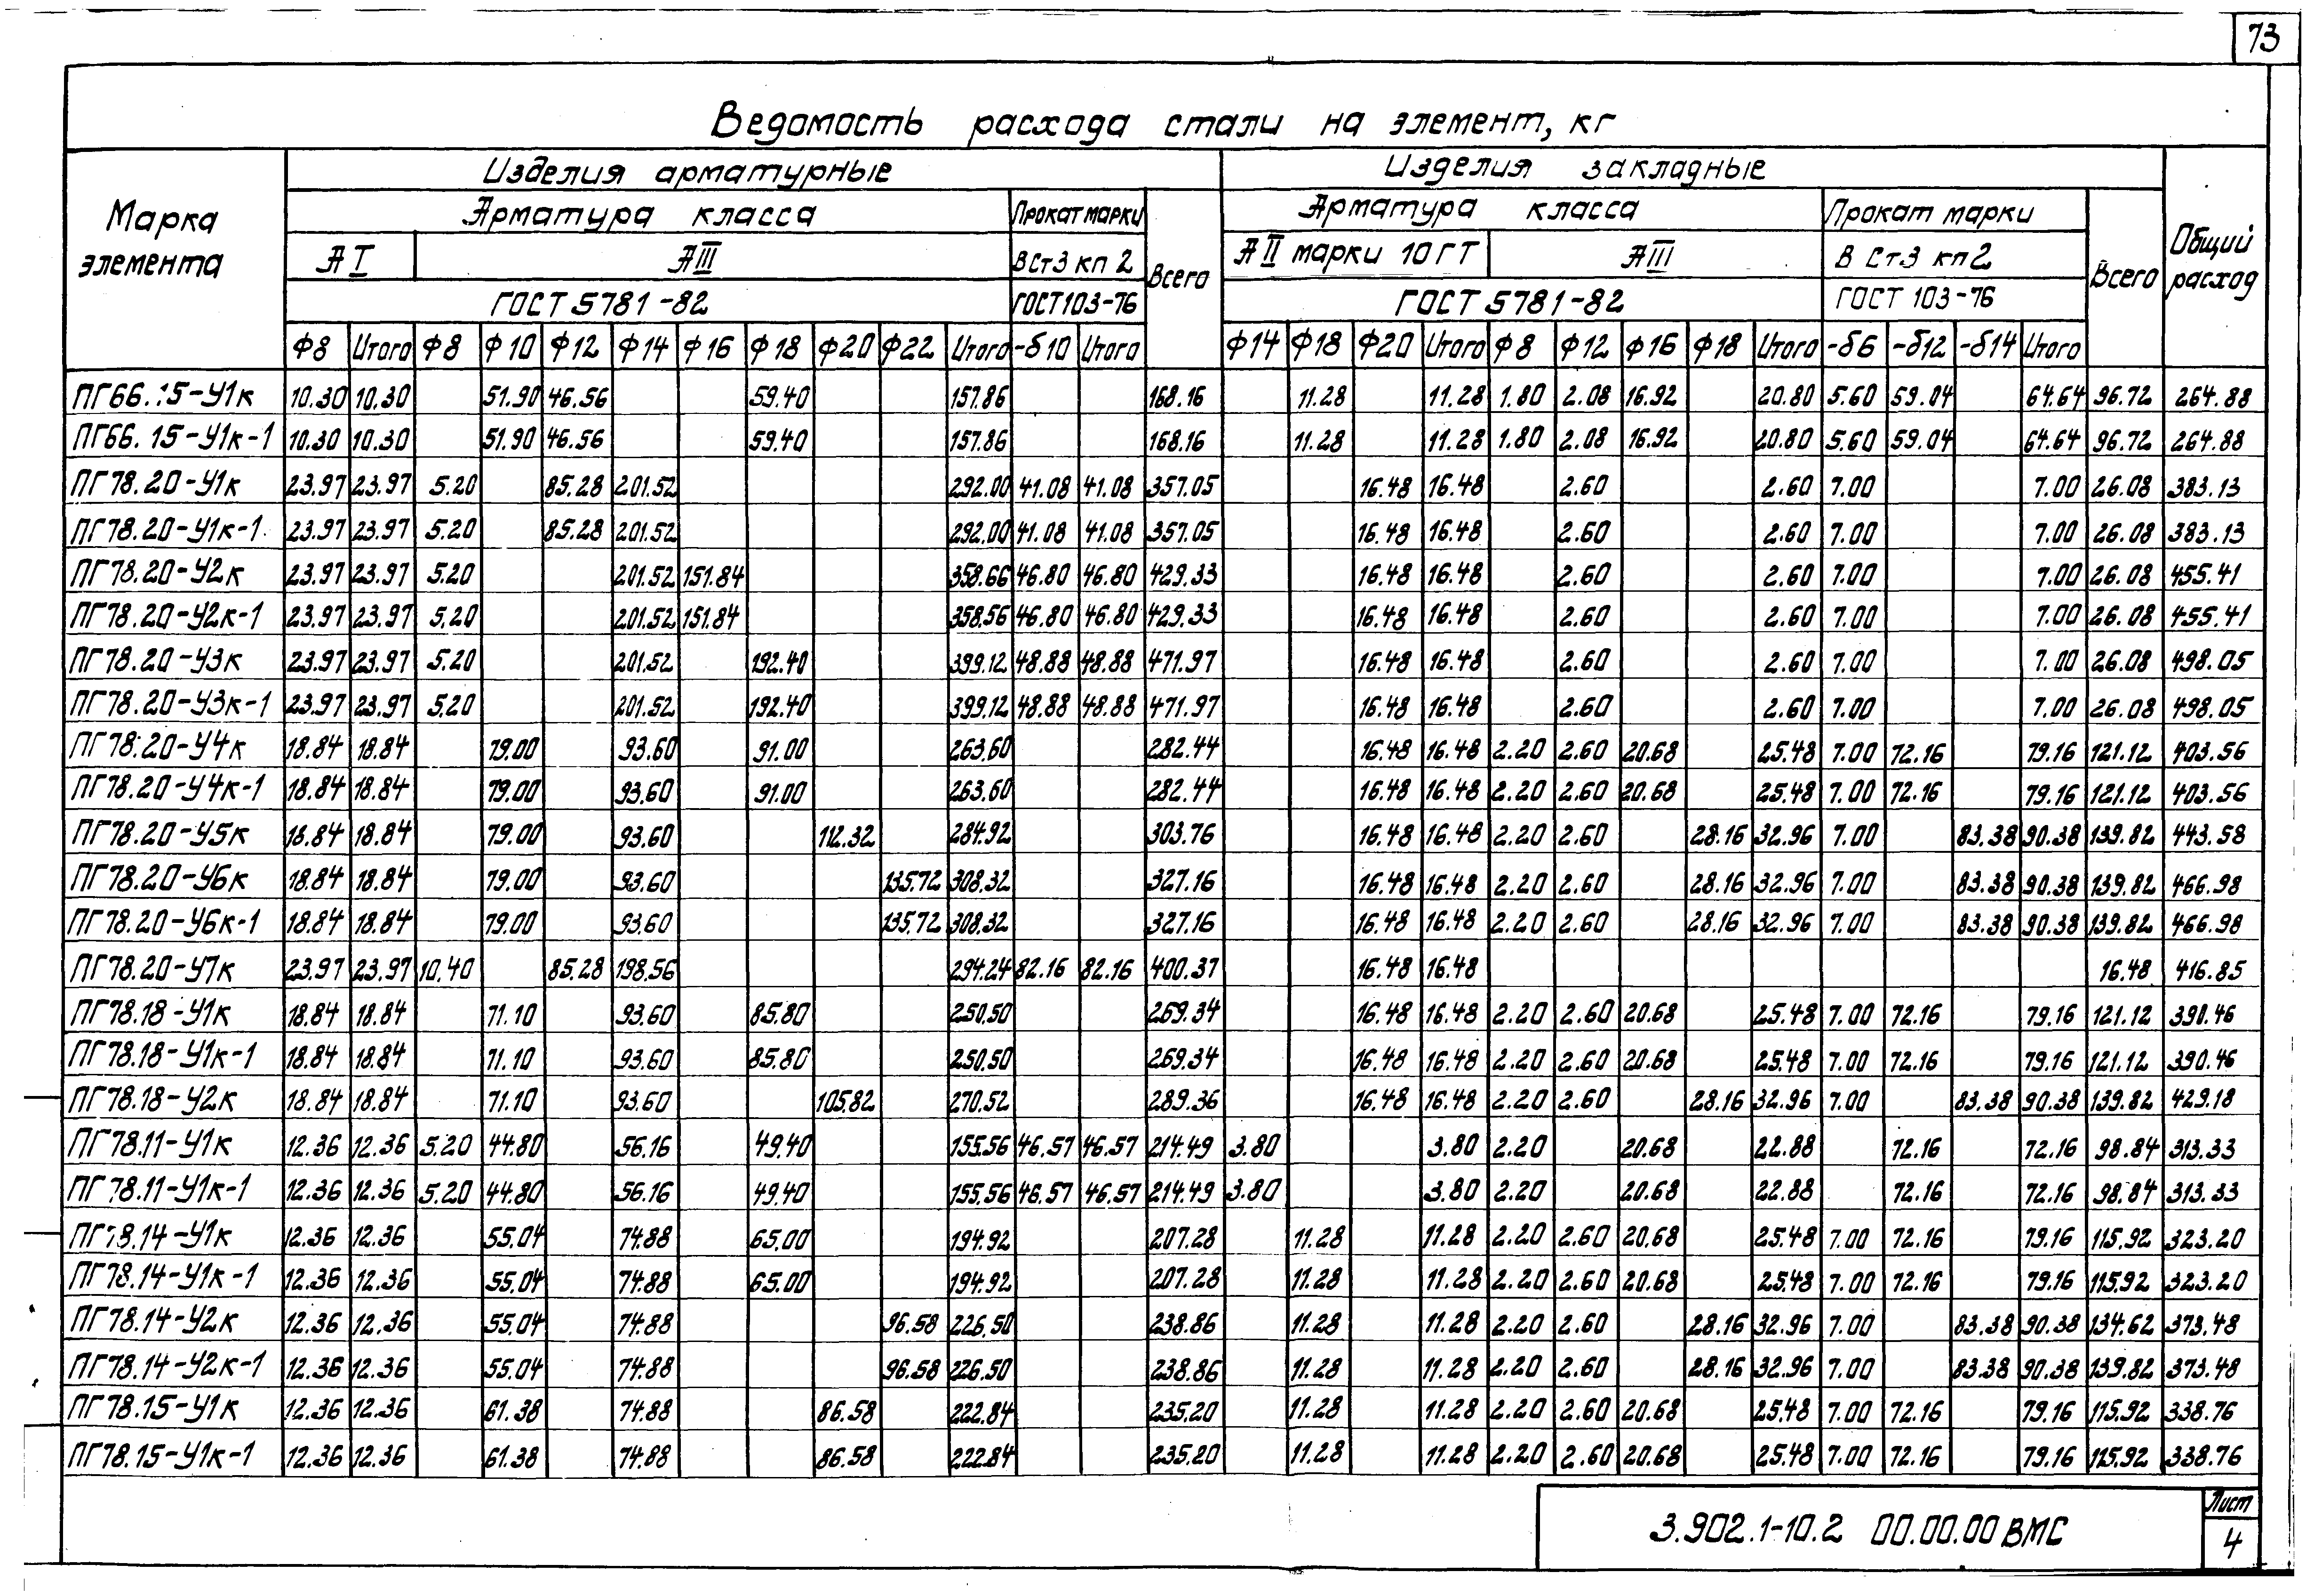 73
Ведомость расхода стали на элемент, кг
Марка элемента
Изделия арматурные
Изделия закладные
Общий расход
Арматура класса
Прокат марки
Всего
Арматура класса
Прокат марки
Всего
А I
А III
В Ст3 кп 2
А II марки 10 ГТ
А III
В Ст3 кп2
ГОСТ 5781-82
ГОСТ 103-76
ГОСТ 5781-82
ГОСТ 103-76
Ф8 Итого Ф8 Ф10 Ф12 Ф14 Ф16 Ф18 Ф20 Ф22 Итого -δ10 Итого Ф14 Ф18 Ф20 Итого Ф8 Ф12 Ф16 Ф18 Итого -δ6 -δ12 -δ14 Итого
ПГ66.15-У1к 10.30 10.30 51.90 46.56 59.40 157.86 168.16 11.28 11.28 1.80 2.08 16.92 20.80 5.60 59.04 64.64 96.72 264.88
ПГ66.15-У1к-1 10.30 10.30 51.90 46.56 59.40 157.86 168.16 11.28 11.28 1.80 2.08 16.92 20.80 5.60 59.04 64.64 96.72 264.88
ПГ78.20-У1к 23.97 23.97 5.20 85.28 201.52 292.00 41.08 41.08 357.05 16.48 16.48 2.60 2.60 7.00 7.00 26.08 383.13
ПГ78.20-У1к-1 23.97 23.97 5.20 85.28 201.52 292.00 41.08 41.08 357.05 16.48 16.48 2.60 2.60 7.00 7.00 26.08 383.13
ПГ78.20-У2к 23.97 23.97 5.20 201.52 151.84 358.66 46.80 46.80 429.33 16.48 16.48 2.60 2.60 7.00 7.00 26.08 455.41
ПГ78.20-У2к-1 23.97 23.97 5.20 201.52 151.84 358.56 46.80 46.80 429.33 16.48 16.48 2.60 2.60 7.00 7.00 26.08 455.41
ПГ78.20-У3к 23.97 23.97 5.20 201.52 192.40 399.12 48.88 48.88 471.97 16.48 16.48 2.60 2.60 7.00 7.00 26.08 498.05
ПГ78.20-У3к-1 23.97 23.97 5.20 201.52 192.40 399.12 48.88 48.88 471.97 16.48 16.48 2.60 2.60 7.00 7.00 26.08 498.05
ПГ78.20-У4к 18.84 18.84 79.00 93.60 91.00 263.60 282.44 16.48 16.48 2.20 2.60 20.68 25.48 7.00 72.16 79.16 121.12 403.56
ПГ78.20-У4к-1 18.84 18.84 79.00 93.60 91.00 263.60 282.44 16.48 16.48 2.20 2.60 20.68 25.48 7.00 72.16 79.16 121.12 403.56
ПГ78.20-У5к 18.84 18.84 79.00 93.60 112.32 284.92 303.76 16.48 16.48 2.20 2.60 28.16 32.96 7.00 83.38 90.38 139.82 443.58
ПГ78.20-У6к 18.84 18.84 79.00 93.60 135.72 308.32 327.16 16.48 16.48 2.20 2.60 28.16 32.96 7.00 83.38 90.38 139.82 466.98
ПГ78.20-У6к-1 18.84 18.84 79.00 93.60 135.72 308.32 327.16 16.48 16.48 2.20 2.60 28.16 32.96 7.00 83.38 90.38 139.82 466.98
ПГ78.20-У7к 23.97 23.97 10.40 85.28 198.56 294.24 82.16 82.16 400.37 16.48 16.48 16.48 416.85
ПГ78.18-У1к 18.84 18.84 71.10 93.60 85.80 250.50 269.34 16.48 16.48 2.20 2.60 20.68 25.48 7.00 72.16 79.16 121.12 390.46
ПГ78.18-У1к-1 18.84 18.84 71.10 93.60 85.80 250.50 269.34 16.48 16.48 2.20 2.60 20.68 25.48 7.00 72.16 79.16 121.12 390.46
ПГ78.18-У2к 18.84 18.84 71.10 93.60 105.82 270.52 289.36 16.48 16.48 2.20 2.60 28.16 32.96 7.00 83.38 90.38 139.82 429.18
ПГ78.11-У1к 12.36 12.36 5.20 44.80 56.16 49.40 155.56 46.57 46.57 214.49 3.80 3.80 2.20 20.68 22.88 72.16 72.16 98.84 313.33
ПГ78.11-У1к-1 12.36 12.36 5.20 44.80 56.16 49.40 155.56 46.57 46.57 214.49 3.80 3.80 2.20 20.68 22.88 72.16 72.16 98.84 313.33
ПГ78.14-У1к 12.36 12.36 55.04 74.88 65.00 194.92 207.28 11.28 11.28 2.20 2.60 20.68 25.48 7.00 72.16 79.16 115.92 323.20
ПГ78.14-У1к-1 12.36 12.36 55.04 74.88 65.00 194.92 207.28 11.28 11.28 2.20 2.60 20.68 25.48 7.00 72.16 79.16 115.92 323.20
ПГ78.14-У2к 12.36 12.36 55.04 74.88 96.58 226.50 238.86 11.28 11.28 2.20 2.60 28.16 32.96 7.00 83.38 90.38 134.62 373.48
ПГ78.14-У2к-1 12.36 12.36 55.04 74.88 96.58 226.50 238.86 11.28 11.28 2.20 2.60 28.16 32.96 7.00 83.38 90.38 139.82 373.48
ПГ78.15-У1к 12.36 12.36 61.38 74.88 86.58 222.84 235.20 11.28 11.28 2.20 2.60 20.68 25.48 7.00 72.16 79.16 115.92 338.76
ПГ78.15-У1к-1 12.36 12.36 61.38 74.88 86.58 222.84 235.20 11.28 11.28 2.20 2.60 20.68 25.48 7.00 72.16 79.16 115.92 338.76
3.902.1-10.2 00.00.00 ВМС
Лист
4